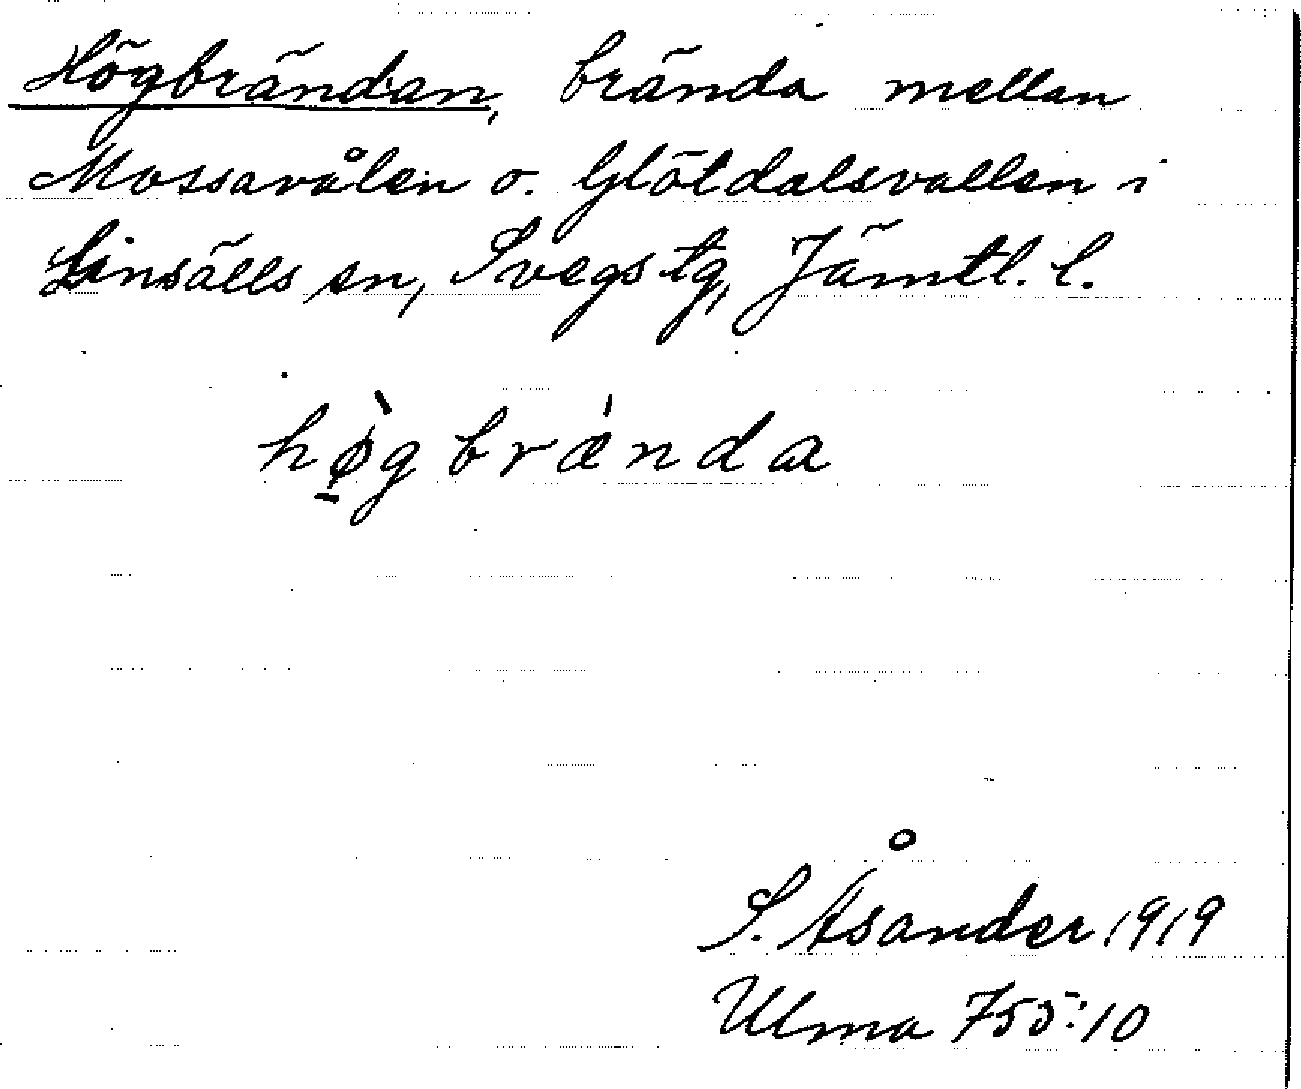 Högbrändan, brända mellan
Mossavålen o. Glöldalsvallen i
Linsälls sn, Svegs tg, Jämtl. l.
hø̱̀gbrǽnda
S. Åsander 1919
Ulma 755:10